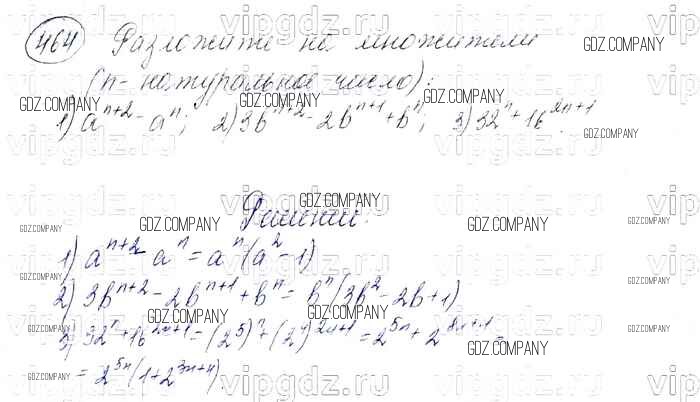 464 Разложите на множители
(n - натуральное число):
1) a^{n+2} - a^n; 2) 3b^{n+2} - 2b^{n+1} + b^n; 3) 32^n + 16^{2n+1}.
Решение:
1) a^{n+2} - a^n = a^n (a^2 - 1)
2) 3b^{n+2} - 2b^{n+1} + b^n = b^n (3b^2 - 2b + 1)
3) 32^n + 16^{2n+1} = (2^5)^n + (2^4)^{2n+1} = 2^{5n} + 2^{8n+4} =
= 2^{5n} (1 + 2^{3n+4})
vipgdz.ru
GDZ.COMPANY